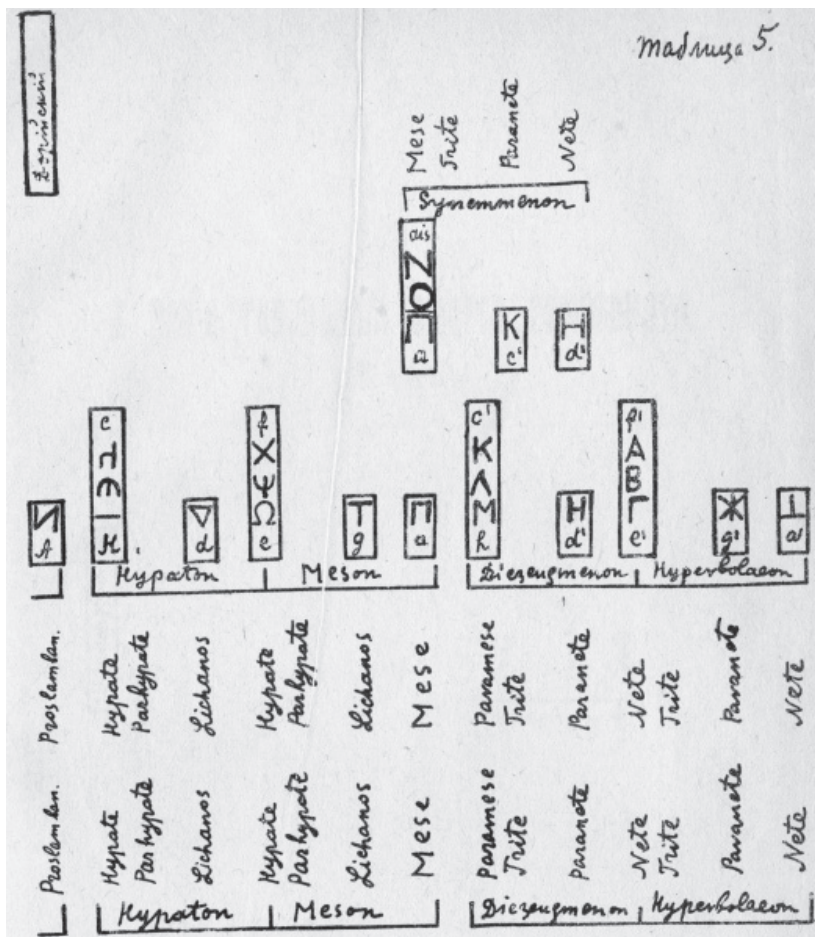 Таблица 5.
Дорийский
Mese
Trite
Paranete
Nete
Synemmenon
ais
Z
O
Π
a
K
c'
H
d'
A
H
c
d
e
f
X
Ω
g
T
a
Π
h
M
Λ
K
c'
d'
H
e'
Γ
B
A
f'
g'
Ж
a'
Hypaton
Meson
Diezeugmenon
Hyperbolaeon
Proslamban.
Hypate
Parhypate
Lichanos
Hypate
Parhypate
Lichanos
Mese
Paramese
Trite
Paranete
Nete
Trite
Paranete
Nete
Proslamban.
Hypate
Parhypate
Lichanos
Hypate
Parhypate
Lichanos
Mese
Paramese
Trite
Paranete
Nete
Trite
Paranete
Nete
Hypaton
Meson
Diezeugmenon
Hyperbolaeon